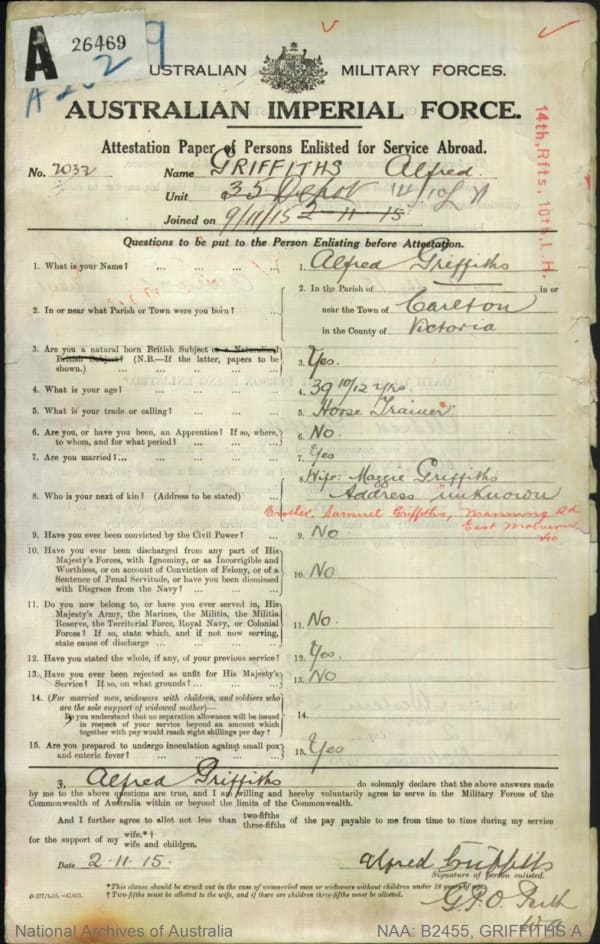 A 26469
A 2029
AUSTRALIAN MILITARY FORCES.
AUSTRALIAN IMPERIAL FORCE.
Attestation Paper of Persons Enlisted for Service Abroad.
No. 2032 Name GRIFFITHS Alfred.
Unit 35 Depot 14/10 L H
Joined on 9/11/15 2-11-15
14th, Rfts, 10th, L.H.
Questions to be put to the Person Enlisting before Attestation.
1. What is your Name? ... ... ... ... 1. Alfred Griffiths
2. In or near what Parish or Town were you born? ... 2. In the Parish of in or
near the Town of Carlton
in the County of Victoria
3. Are you a natural born British Subject or a Naturalized
British Subject? (N.B.—If the latter, papers to be
shown.) ... ... ... ... 3. Yes.
4. What is your age? ... ... ... ... 4. 39 10/12 Yrs.
5. What is your trade or calling? ... ... ... 5. Horse Trainer.
6. Are you, or have you been, an Apprentice? If so, where,
to whom, and for what period? ... ... ... 6. No.
7. Are you married?... ... ... ... 7. Yes
8. Who is your next of kin? (Address to be stated) ... 8. Wife: Maggie Griffiths
Address unknown
Brother, Samuel Griffiths, Manning Rd
East Malvern
Vic
9. Have you ever been convicted by the Civil Power? ... 9. No
10. Have you ever been discharged from any part of His
Majesty's Forces, with Ignominy, or as Incorrigible and
Worthless, or on account of Conviction of Felony, or of a
Sentence of Penal Servitude, or have you been dismissed
with Disgrace from the Navy? ... ... ... 10. No
11. Do you now belong to, or have you ever served in, His
Majesty's Army, the Marines, the Militia, the Militia
Reserve, the Territorial Force, Royal Navy, or Colonial
Forces? If so, state which, and if not now serving,
state cause of discharge ... ... ... ... 11. No.
12. Have you stated the whole, if any, of your previous service? 12. Yes.
13. Have you ever been rejected as unfit for His Majesty's
Service? If so, on what grounds? ... ... ... 13. No
14. (For married men, widowers with children, and soldiers who
are the sole support of widowed mother)—
Do you understand that no separation allowance will be issued
in respect of your service beyond an amount which
together with pay would reach eight shillings per day? 14.
15. Are you prepared to undergo inoculation against small pox
and enteric fever? ... ... ... ... 15. Yes
I, Alfred Griffiths do solemnly declare that the above answers made
by me to the above questions are true, and I am willing and hereby voluntarily agree to serve in the Military Forces of the
Commonwealth of Australia within or beyond the limits of the Commonwealth.
And I further agree to allot not less than two-fifths three-fifths of the pay payable to me from time to time during my service
for the support of my wife.*†
wife and children.
Date 2.11.15. Alfred Griffiths
Signature of person enlisted.
*This clause should be struck out in the case of unmarried men or widowers without children under 18 years of age.
† Two-fifths must be allotted to the wife, and if there are children three-fifths must be allotted.
G.P.O. Perth
W.A
National Archives of Australia NAA: B2455, GRIFFITHS A